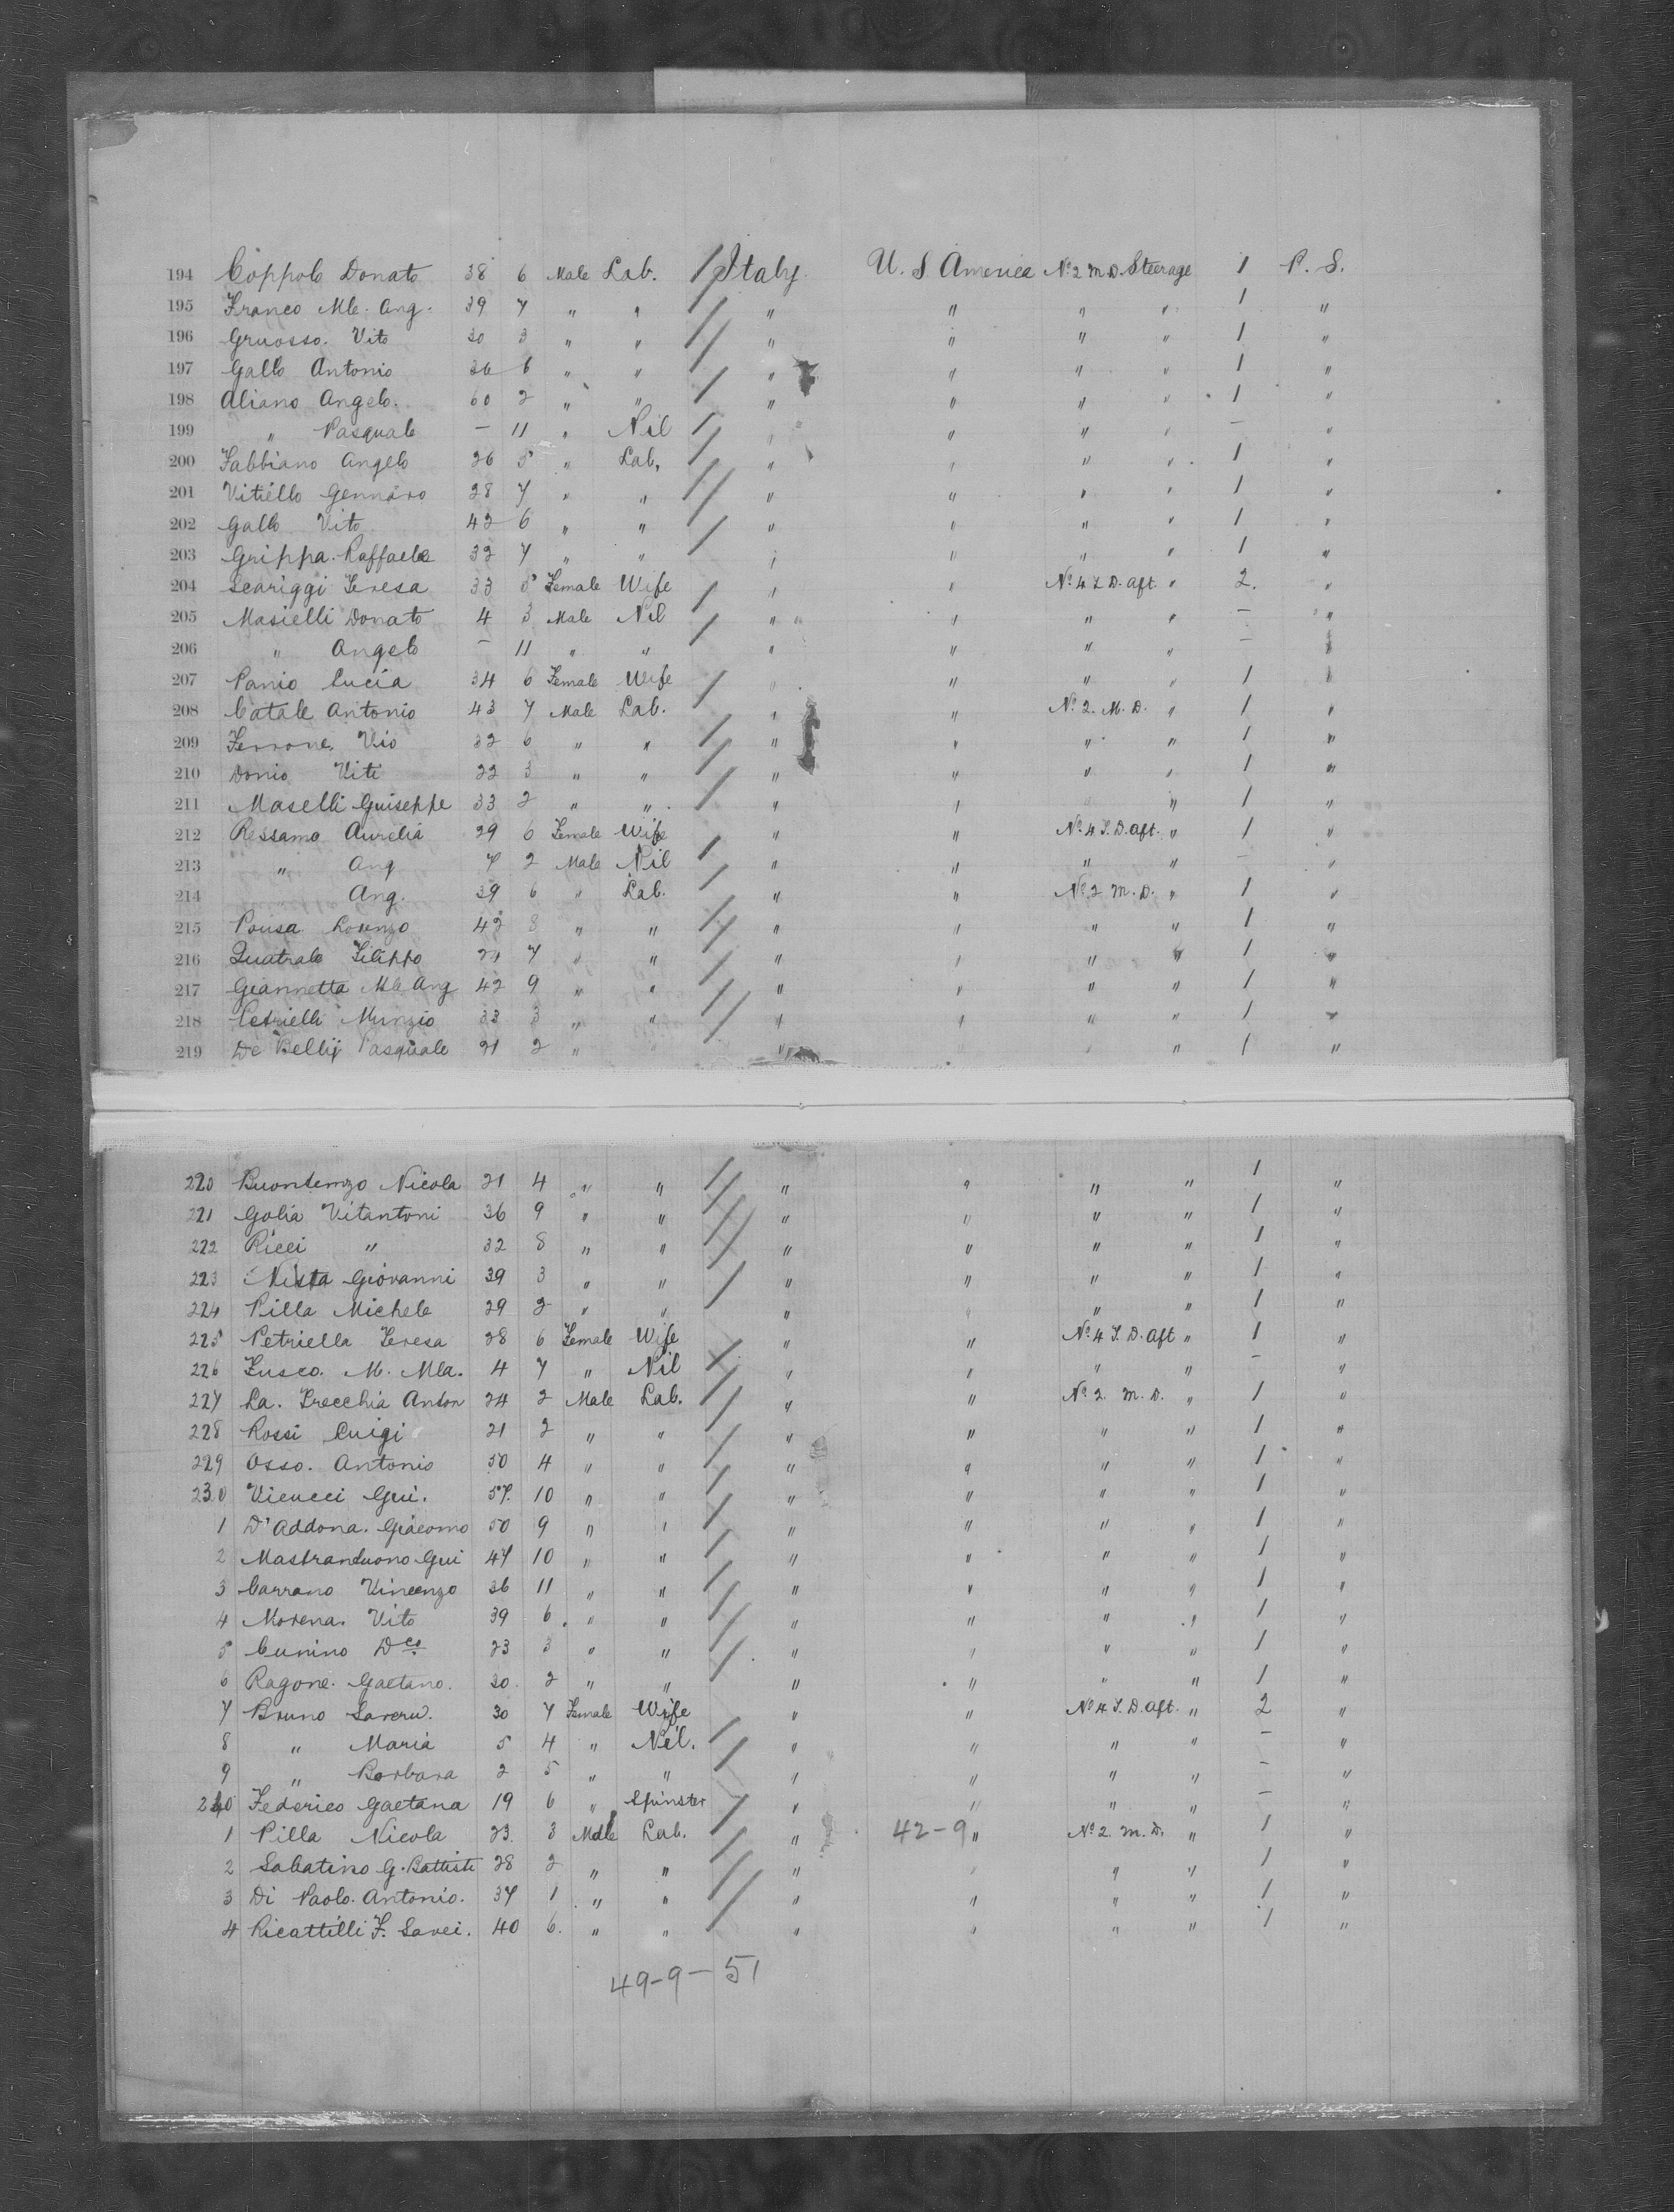 194 Coppolo Donato 38 6 Male Lab. Italy U. S America No 2 M D. Steerage 1 P. S.
195 Franco Mle. Ang. 39 7 " " " " " " 1 "
196 Gruosso. Vito 30 3 " " " " " " 1 "
197 Gallo Antonio 36 6 " " " " " " 1 "
198 Aliano Angelo. 60 2 " " " " " " 1 "
199 " Pasquale – 11 " Nil " " " " – "
200 Fabbiano Angelo 26 5 " Lab. " " " " 1 "
201 Vitiello Gennaro 28 7 " " " " " " 1 "
202 Gallo Vito 42 6 " " " " " " 1 "
203 Grippa. Raffaele 32 7 " " " " " " 1 "
204 Scariggi Teresa 33 5 Female Wife " " No 4 S. D. aft. " 2. "
205 Masielli Donato 4 3 Male Nil " " " " – "
206 " Angelo – 11 " " " " " " – "
207 Panio Lucia 34 6 Female Wife " " " " 1 "
208 Catale Antonio 43 7 Male Lab. " " No 2. M. D. " 1 "
209 Ferrone Vio 32 6 " " " " " " 1 "
210 Donio Viti 22 3 " " " " " " 1 "
211 Maselli Guiseppe 33 2 " " " " " 1 "
212 Ressamo Aurelia 29 6 Female Wife " " No 4 S. D. aft. " 1 "
213 " Ang 7 2 Male Nil " " " " – "
214 Ang. 39 6 " Lab. " " No 2 M. D. " 1 "
215 Pousa Lorenzo 42 8 " " " " " " 1 "
216 Quatrale Filippo 7 " " " " " " 1 "
217 Giannetta Mle Ang 42 9 " " " " " " 1 "
218 Petrielli Nunzio 33 3 " " " " " " 1 "
219 De Bellij Pasquale 21 2 " " " " " 1 "
220 Buontempo Nicola 21 4 " " " " " " 1 "
221 Golia Vitantoni 36 9 " " " " " " 1 "
222 Ricci " 32 8 " " " " " " 1 "
223 Nista Giovanni 39 3 " " " " " " 1 "
224 Pilla Michele 29 2 " " " " " " 1 "
225 Petriella Teresa 28 6 Female Wife " " No 4 S. D. aft " 1 "
226 Fusco. M. Mla. 4 7 " Nil " " " " – "
227 La. Frecchia Anton 24 2 Male Lab. " " No 2. M. D. " 1 "
228 Rossi Luigi 21 2 " " " " " " 1 "
229 Osso. Antonio 50 4 " " " " " " 1 "
230 Vicucci Gui. 57. 10 " " " " " " 1 "
1 D'Addona. Giacomo 50 9 " " " " " " 1 "
2 Mastranduono Gui 47 10 " " " " " " 1 "
3 Carrano Vincenzo 36 11 " " " " " " 1 "
4 Morena. Vito 39 6. " " " " " " 1 "
5 Cunino Dco. 23 3 " " " " " " 1 "
6 Ragone. Gaetano. 30. 2 " " " " " " 1 "
7 Bruno 30 7 Female Wife " " No 4 S. D. aft. " 2 "
8 " Maria 5 4 " Nil. " " " " – "
9 " Barbara 2 5 " " " " " " – "
240 Federico Gaetana 19 6 " Spinster " " " " – "
1 Pilla Nicola 23. 3 Male Lab. " 42-9 " No 2. M. D. " 1 "
2 Sabatino G. Battiste 28 2 " " " " " " 1 "
3 Di Paolo. Antonio. 37 1 " " " " " " 1 "
4 Ricattilli F. Savei. 40 6. " " " " " " 1 "
49-9-51